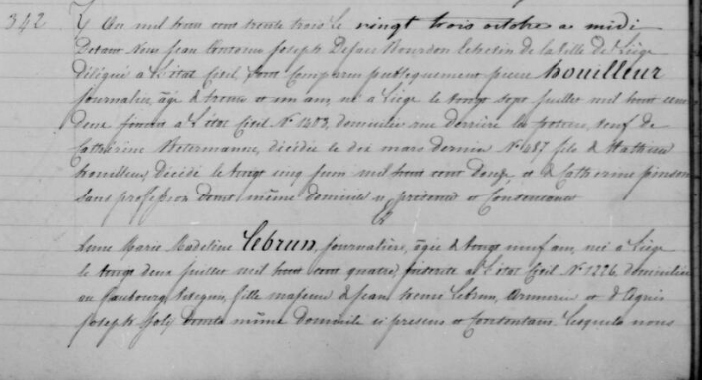 342
L'An mil huit cent trente trois le vingt trois octobre a midi
Devant Nous Jean Antoine Joseph Bourdon Echevin de la Ville de Liége
délégué à l'état Civil Sont Comparus publiquement pierre houilleur
journalier, âgé de trente et un ans, né à Liége le vingt sept juillet mil huit cent
deux inscrit à l'état Civil N° 1483, domicilié rue derrière les potiers, veuf de
Catherine décédée le dix mars dernier N° 487 fils de Mathieu
houilleur, décédé le vingt cinq juin mil huit cent Douze et de Catherine pinson
sans profession domte même domicile ici présente et Consentante
Et
Anne Marie Madeleine Lebrun, journalière, âgée de vingt neuf ans, née à Liége
le vingt deux juillet mil huit cent quatre, inscrite à l'état Civil N° 1226, domiciliée
au faubourg fille majeure de Jean henri Lebrun, Armurier et d'Agnès
Joseph Joly domts même domicile ici présens et Consentans. Lesquels nous